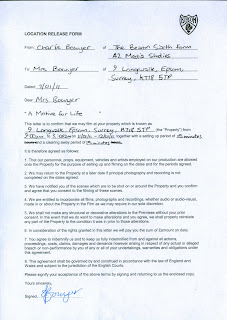 LOCATION RELEASE FORM
From: Charlie Bowyer of The Beacon Sixth Form
A2 Media Studies
To: Mrs Bowyer of 9 Longwalk, Epsom,
Surrey, KT18 5TP
Dated: 9/01/11
Dear Mrs Bowyer
"A Motive for Life"
This letter is to confirm that we may film at your property which is known as
9 Longwalk, Epsom, Surrey, KT18 5TP (the "Property") from
together with a setting up period of 15 minutes
and a clearing away period of 15 minutes
It is therefore agreed as follows:
1. That our personnel, props, equipment, vehicles and artists employed on our production are allowed
onto the Property for the purpose of setting up and filming on the dates and for the periods agreed.
2. We may return to the Property at a later date if principal photography and recording is not
completed on the dates agreed.
3. We have notified you of the scenes which are to be shot on or around the Property and you confirm
and agree that you consent to the filming of these scenes.
4. We are entitled to incorporate all films, photographs and recordings, whether audio or audio-visual,
made in or about the Property in the Film as we may require in our sole discretion.
5. We shall not make any structural or decorative alterations to the Premises without your prior
consent. In the event that we do want to make alterations and you agree, we shall properly reinstate
any part of the Property to the condition it was in prior to those alterations.
6. In consideration of the rights granted in this letter we will pay you the sum of £ amount on date.
7. You agree to indemnify us and to keep us fully indemnified from and against all actions,
proceedings, costs, claims, damages and demands however arising in respect of any actual or alleged
breach or non-performance by you of any or all of your undertakings, warranties and obligations under
this agreement.
8. This agreement shall be governed by and construed in accordance with the law of England and
Wales and subject to the jurisdiction of the English Courts.
Please signify your acceptance of the above terms by signing and returning to us the enclosed copy.
Yours sincerely,
Signed: Bowyer